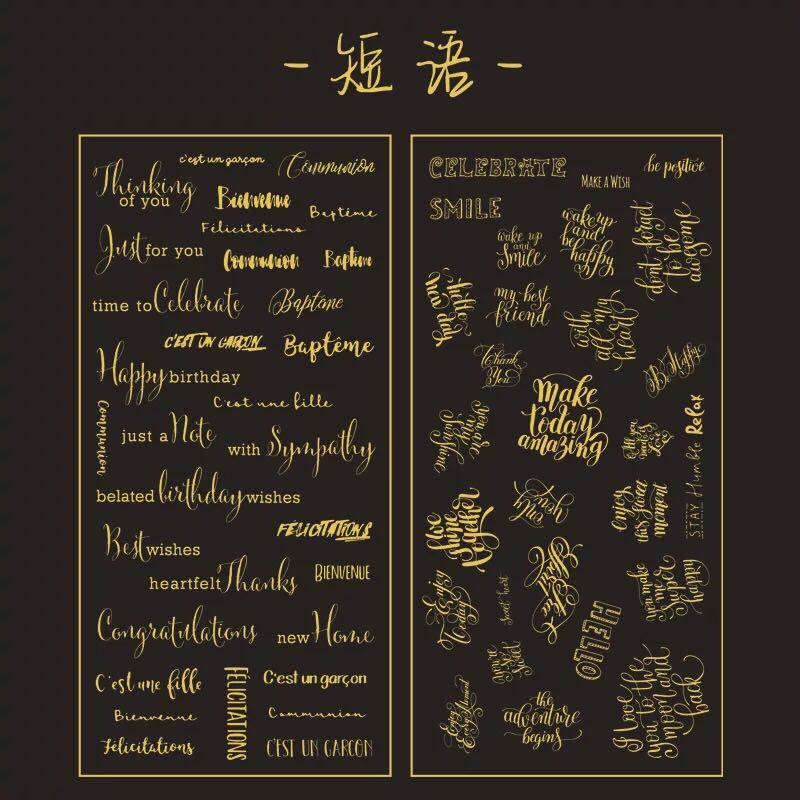 - 短语 -
c'est un garçon
Communion
Thinking
of you
Bienvenue
Baptême
Félicitations
Just for you
Communion
Baptême
time to Celebrate
Baptême
C'EST UN GARÇON
Baptême
Happy birthday
C'est une fille
Communion
just a Note
with Sympathy
belated birthday wishes
FÉLICITATIONS
Best wishes
heartfelt Thanks
BIENVENUE
Congratulations
new Home
C'est une fille
FÉLICITATIONS
C'est un garçon
Bienvenue
Communion
Félicitations
C'EST UN GARCON
CELEBRATE
MAKE A WISH
be positive
SMILE
wake up
and
smile
wake up
and
be
happy
don't forget
to be
awesome
hello
my best
friend
with
all my
heart
Thank
You
B Happy
make
today
amazing
you are
my
sunshine
Relax
Humble
STAY
enjoy
this sweet
moment
live
together
hey
Enjoy
Today
sweet heart
HELLO
you make
me
super
happy
you're
sweet
Enjoy
Moment
the
adventure
begins
I love
you to the
moon and
back